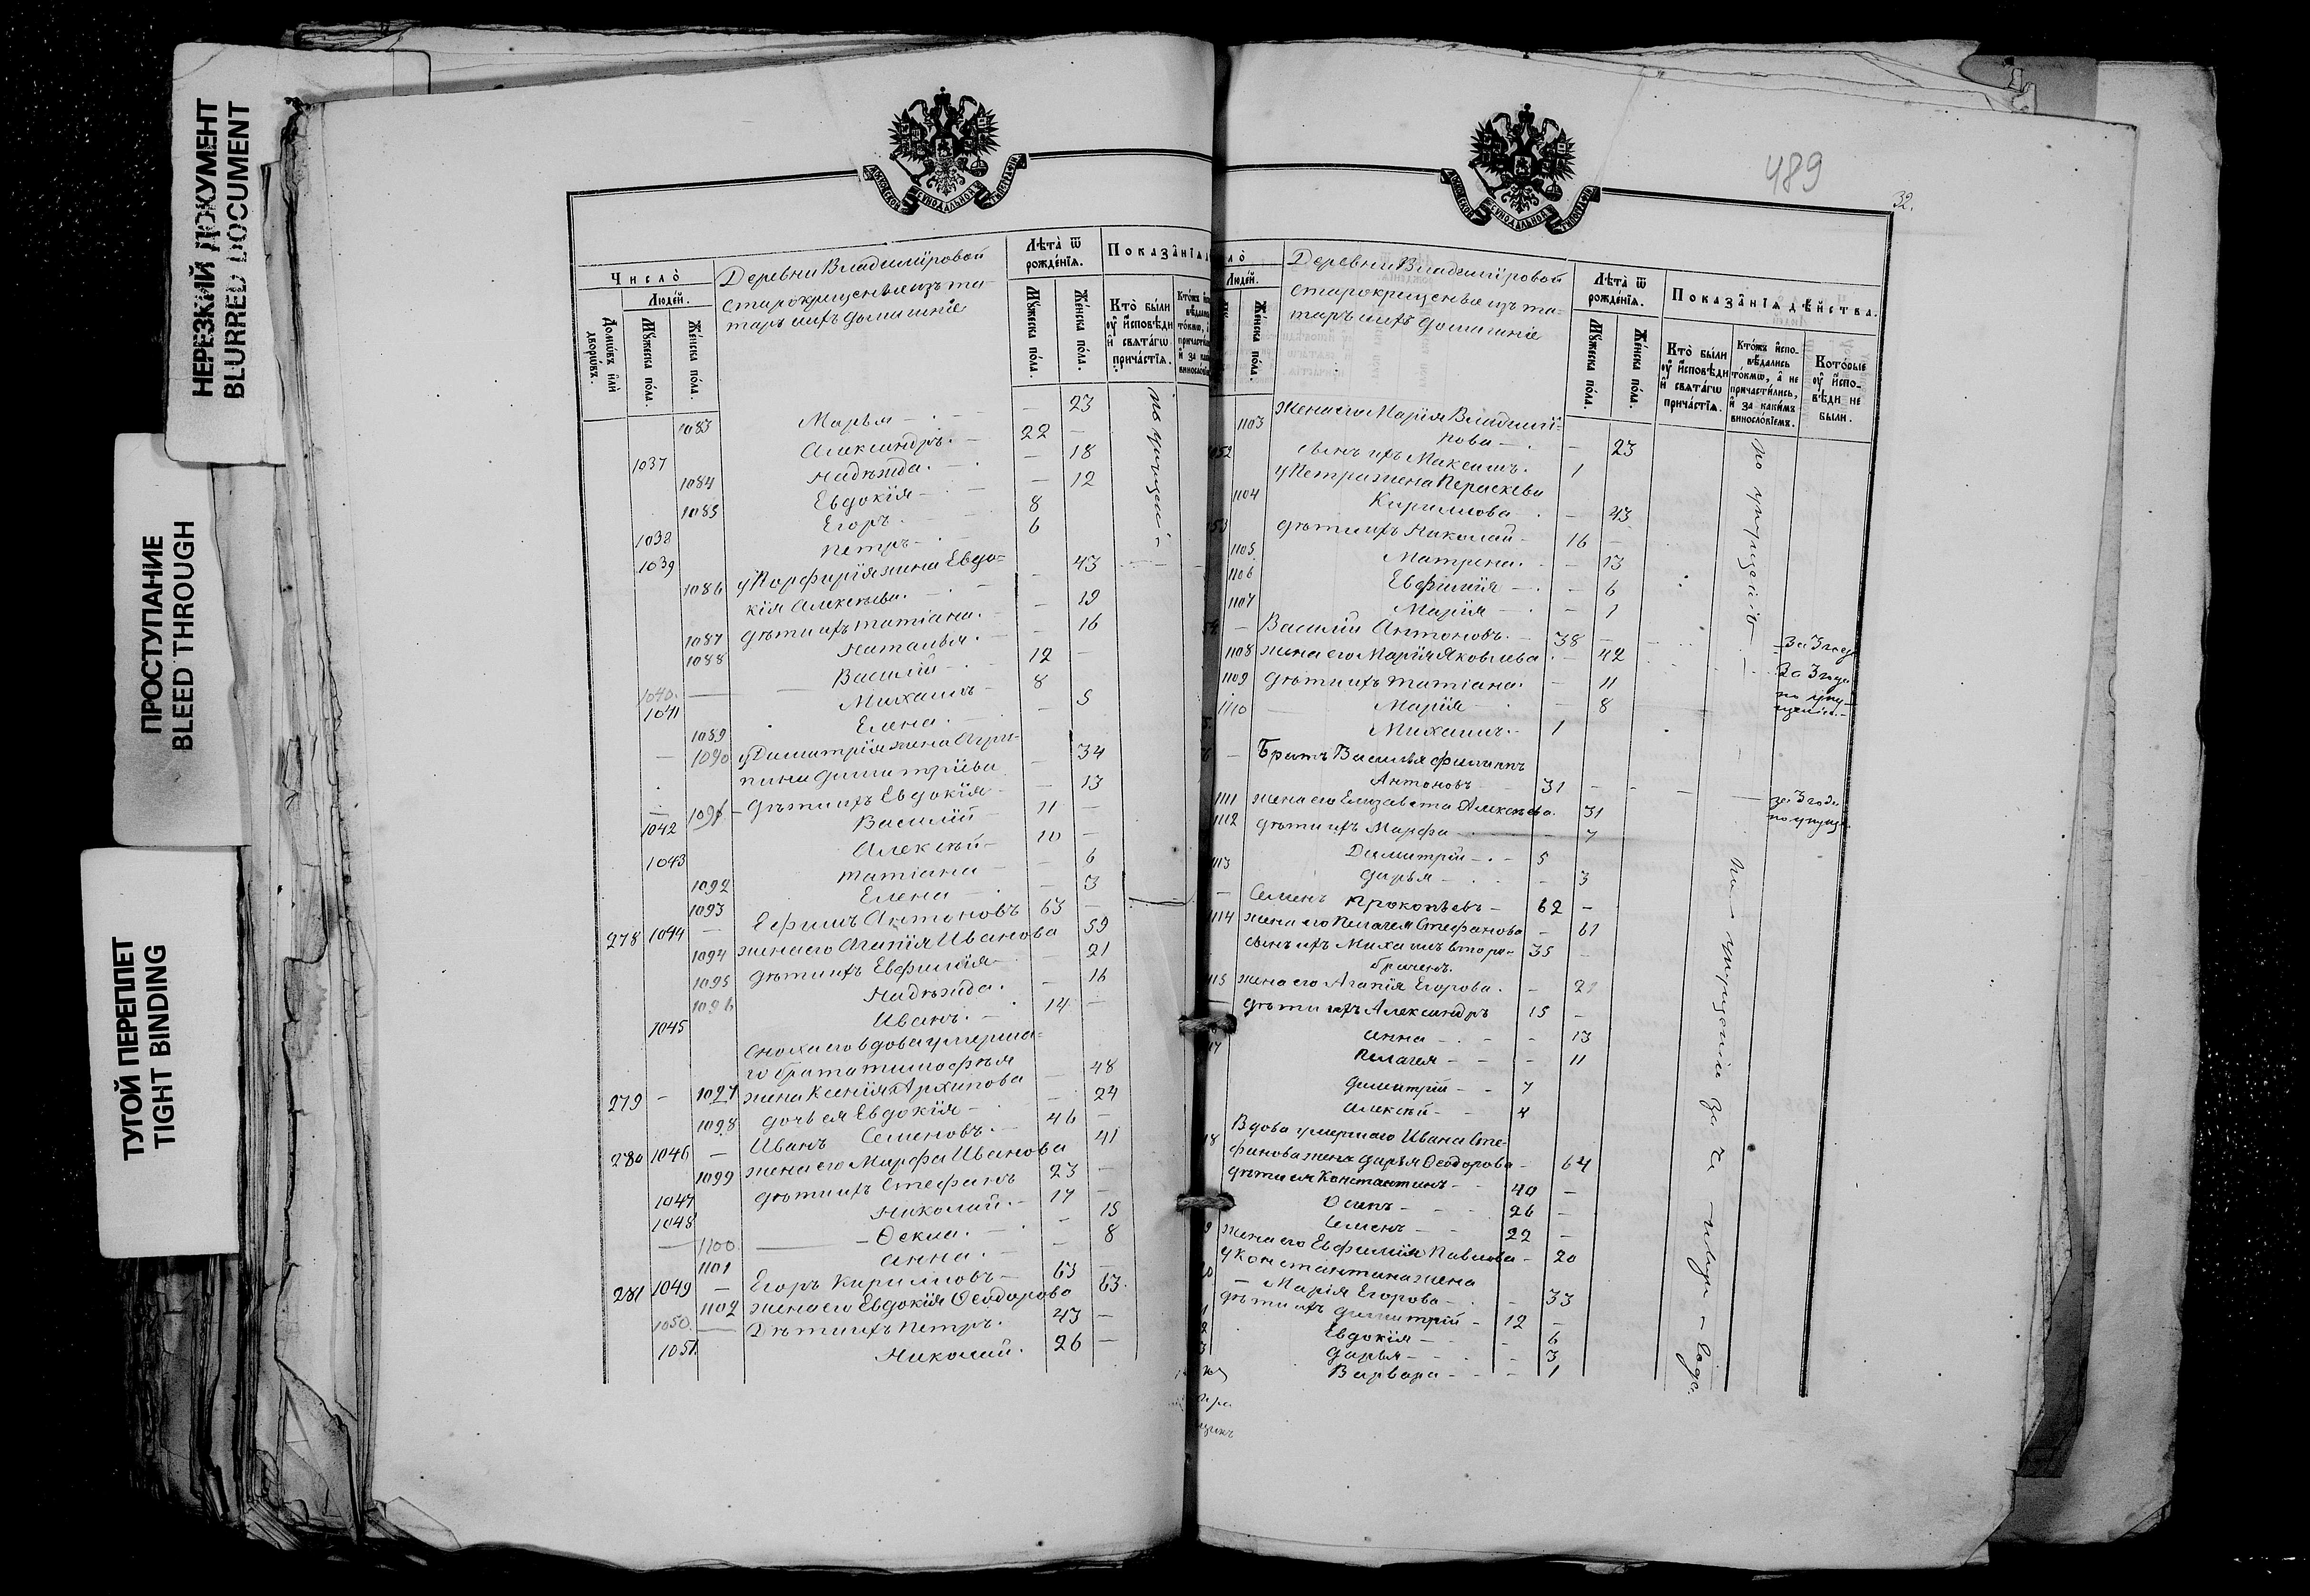 НЕРЕЗКИЙ ДОКУМЕНТ
BLURRED DOCUMENT
ПРОСТУПАНИЕ
BLEED THROUGH
ТУГОЙ ПЕРЕПЛЕТ
TIGHT BINDING
МОСКОВСКОЙ СѴНОДАЛЬНОЙ ТѴПОГРАФІИ
Число̀
Домѡ́въ и҆лѝ дворѡ́въ.
Люде́й.
Мꙋ́жеска по́ла.
Же́нска по́ла.
Деревни Владиміровой
старокрещеные изъ та-
таръ и ихъ домашніе
Лѣта̀ ѿ рожде́нїѧ.
Мꙋ́жеска по́ла.
Же́нска по́ла.
Показа̑нїѧ
Кто̀ бы́ли ᲂу҆ и҆сповѣ́ди и҆ свѧта́гѡ прича́стїѧ.
1083 Марья - 23
1037 Александръ. 22 -
1084 Надѣжда. - 18
1085 Евдокія - 12
1038 Егоръ. 8
1039 Петръ 6
1086 у Порфирія жена Евдо-
кія Алексѣева. - 43
1087 дѣти ихъ Татіана. - 19
1088 Наталья. - 16
1040. Василій 12 -
1041 Михаилъ 8
1089 Елена. - 5
1090 у Димитрія жена Агри-
пина Димитріева - 34
1091 дѣти ихъ Евдокія - 13
1042 Василій 11 -
1043 Алексѣй 10 -
1092 Татіана - 6
1093 Елена - 3
278 1044 - Ефимъ Антоновъ 63 -
1094 жена его Агапія Иванова 59
1095 дѣти ихъ Евфимія - 21
1096 Надѣжда. - 16
1045 Иванъ. 14 -
сноха его вдова умерша-
го брата Тимофѣя
279 - 1097 жена Ксенія Архипова - 48
1098 дочь ея Евдокія - 24
280 1046 - Иванъ Семеновъ. 46 -
1099 жена его Марфа Иванова 41
1047 дѣти ихъ Стефанъ 23 -
1048 Николай. 17 -
1100. Ѳекла. - 15
1101 Анна. - 8
281 1049 - Егоръ Кирилловъ 63 -
1102 жена его Евдокія Ѳеодорова 63.
1050. Дѣти ихъ Петръ. 43 -
1051. Николай. 26 -
МОСКОВСКОЙ СѴНОДАЛЬНОЙ ТѴПОГРАФІИ
489
32.
Люде́й.
Же́нска по́ла.
Деревни Владиміровой
старокрещеные изъ та-
таръ и ихъ домашніе
Лѣта̀ ѿ рожде́нїѧ.
Мꙋ́жеска по́ла.
Же́нска по́ла.
Показа̑нїѧ дѣ́йства.
Кто̀ бы́ли ᲂу҆ и҆сповѣ́ди и҆ свѧта́гѡ прича́стїѧ.
Кто́жъ и҆спо-вѣ́дались то́кмѡ, а҆ не причасти́лись, и҆ за каки́мъ винослѡ́вїемъ.
Кото́рые ᲂу҆ и҆спо-вѣ́ди не бы́ли.
1103 жена его Марія Владимі-
рова - 23
1052 сынъ ихъ Максимъ. 1
1104 у Петра жена Параскева
Кириллова - 43
дѣти ихъ Николай 16 -
1105. Матрена. - 13
1106 Евфимія - 6
1107 Марія - 1
- Василій Антоновъ. 38 - за 3 года
1108 жена его Марія Яковлева - 42 за 3 года
1109 дѣти ихъ Татіана. - 11
1110 Марія - 8
Михаилъ. 1
- Братъ Василья Филиппъ
Антоновъ 31 -
1111 жена его Елизавета Алексѣева. 31 за 3 года
1112 дѣти ихъ Марфа - 7
Димитрій 5
1113 Дарья - 3
- Семенъ Прокопьевъ 62 -
1114 жена его Пелагея Стефанова - 61
сынъ ихъ Михаилъ второ- 35 -
браченъ.
1115 жена его Агапія Егорова. -
дѣти ихъ Александръ 15 -
Анна - 13
Пелагея - 11
Димитрій 7
Алексѣй 4
Вдова умершаго Ивана Сте-
фанова жена Дарья Ѳеодорова 64
дѣти ея Константинъ 40 -
Осипъ 26 -
Семенъ 22 -
жена его Евфимія Павлова - 20
у Константина жена
Марія Егорова - 33
дѣти ихъ Димитрій 12 -
Евдокія - 6
Дарья - 3
Варвара - 1
по упущенію